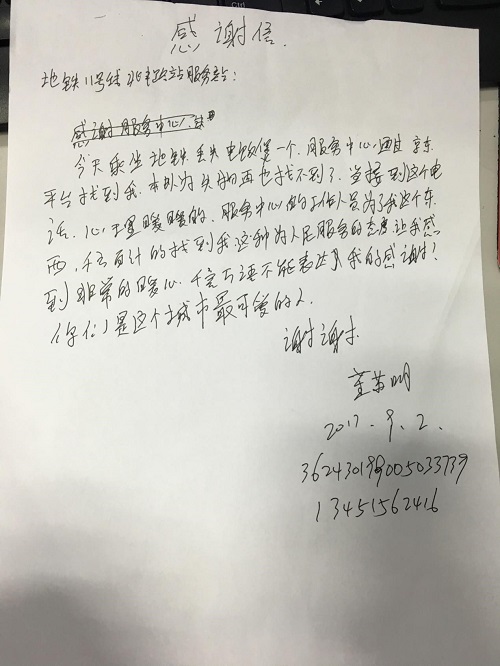 感谢信.
地铁11号线 站服务站:
感谢服务中心
今天乘坐地铁丢失电饭煲一个.服务中心通过京东
平台找到我.本以为失物再也找不到了.当接到这个电
话.心里暖暖的.服务中心的工作人员为了我这个东
西,千方百计的找到我这种为人民服务的态度让我感
到非常的暖心.千言万语不能表达 我的感谢!
你们是这个城市最可爱的人
谢谢.
2017.9.2.
362430199005033739
13451562416